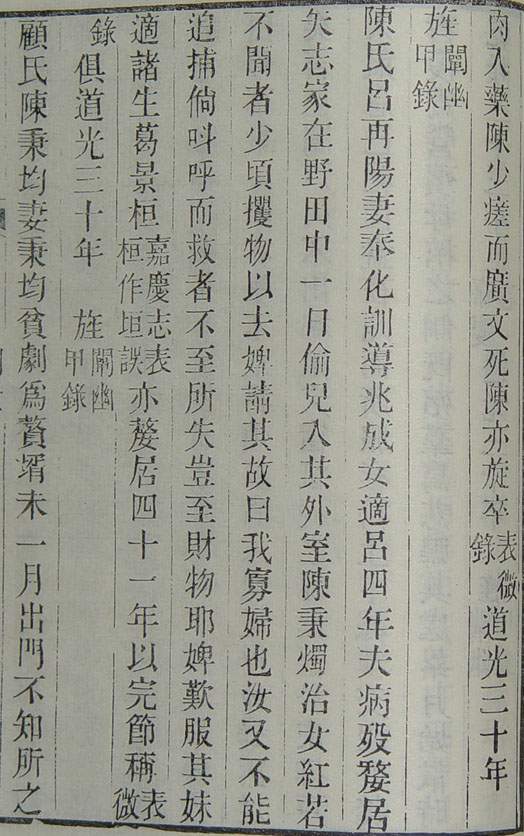 肉入藥陳少瘥而廣文死陳亦旋卒表微錄道光三十年
旌闡幽甲錄
陳氏呂再陽妻奉化訓導兆成女適呂四年夫病歿嫠居
矢志家在野田中一日偷兒入其外室陳秉燭治女紅若
不聞者少頃攫物以去婢請其故曰我寡婦也汝又不能
追捕倘呌呼而救者不至所失豈至財物耶婢歎服其妹
適諸生葛景桓嘉慶志表桓作垣誤亦嫠居四十一年以完節稱表微
錄俱道光三十年旌闡幽甲錄
顧氏陳秉均妻秉均貧劇爲贅壻未一月出門不知所之